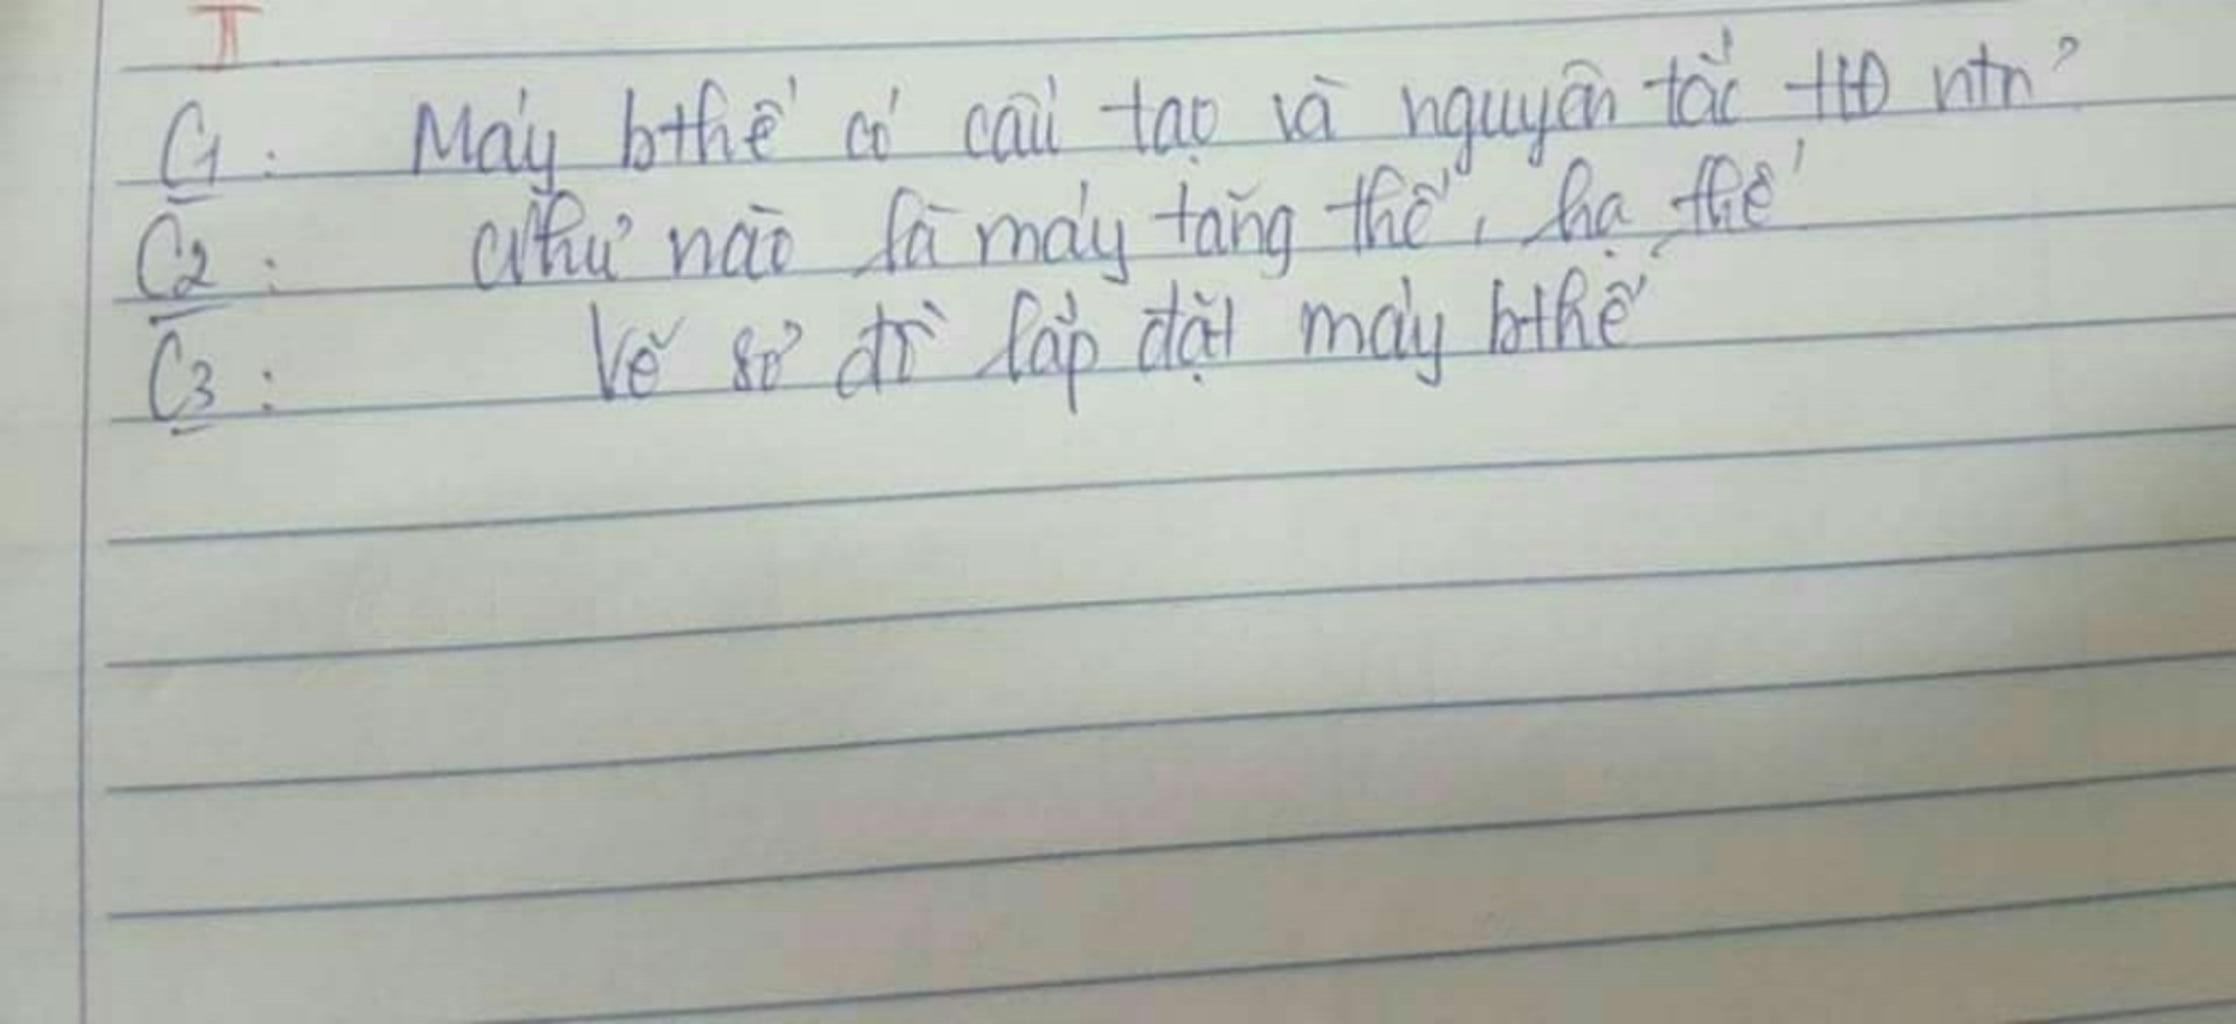 II
C1: Máy bthế có cấu tạo và nguyên tắc HĐ ntn?
C2: Như nào là máy tăng thế, hạ thế
C3: Vẽ sơ đồ lắp đặt máy bthế